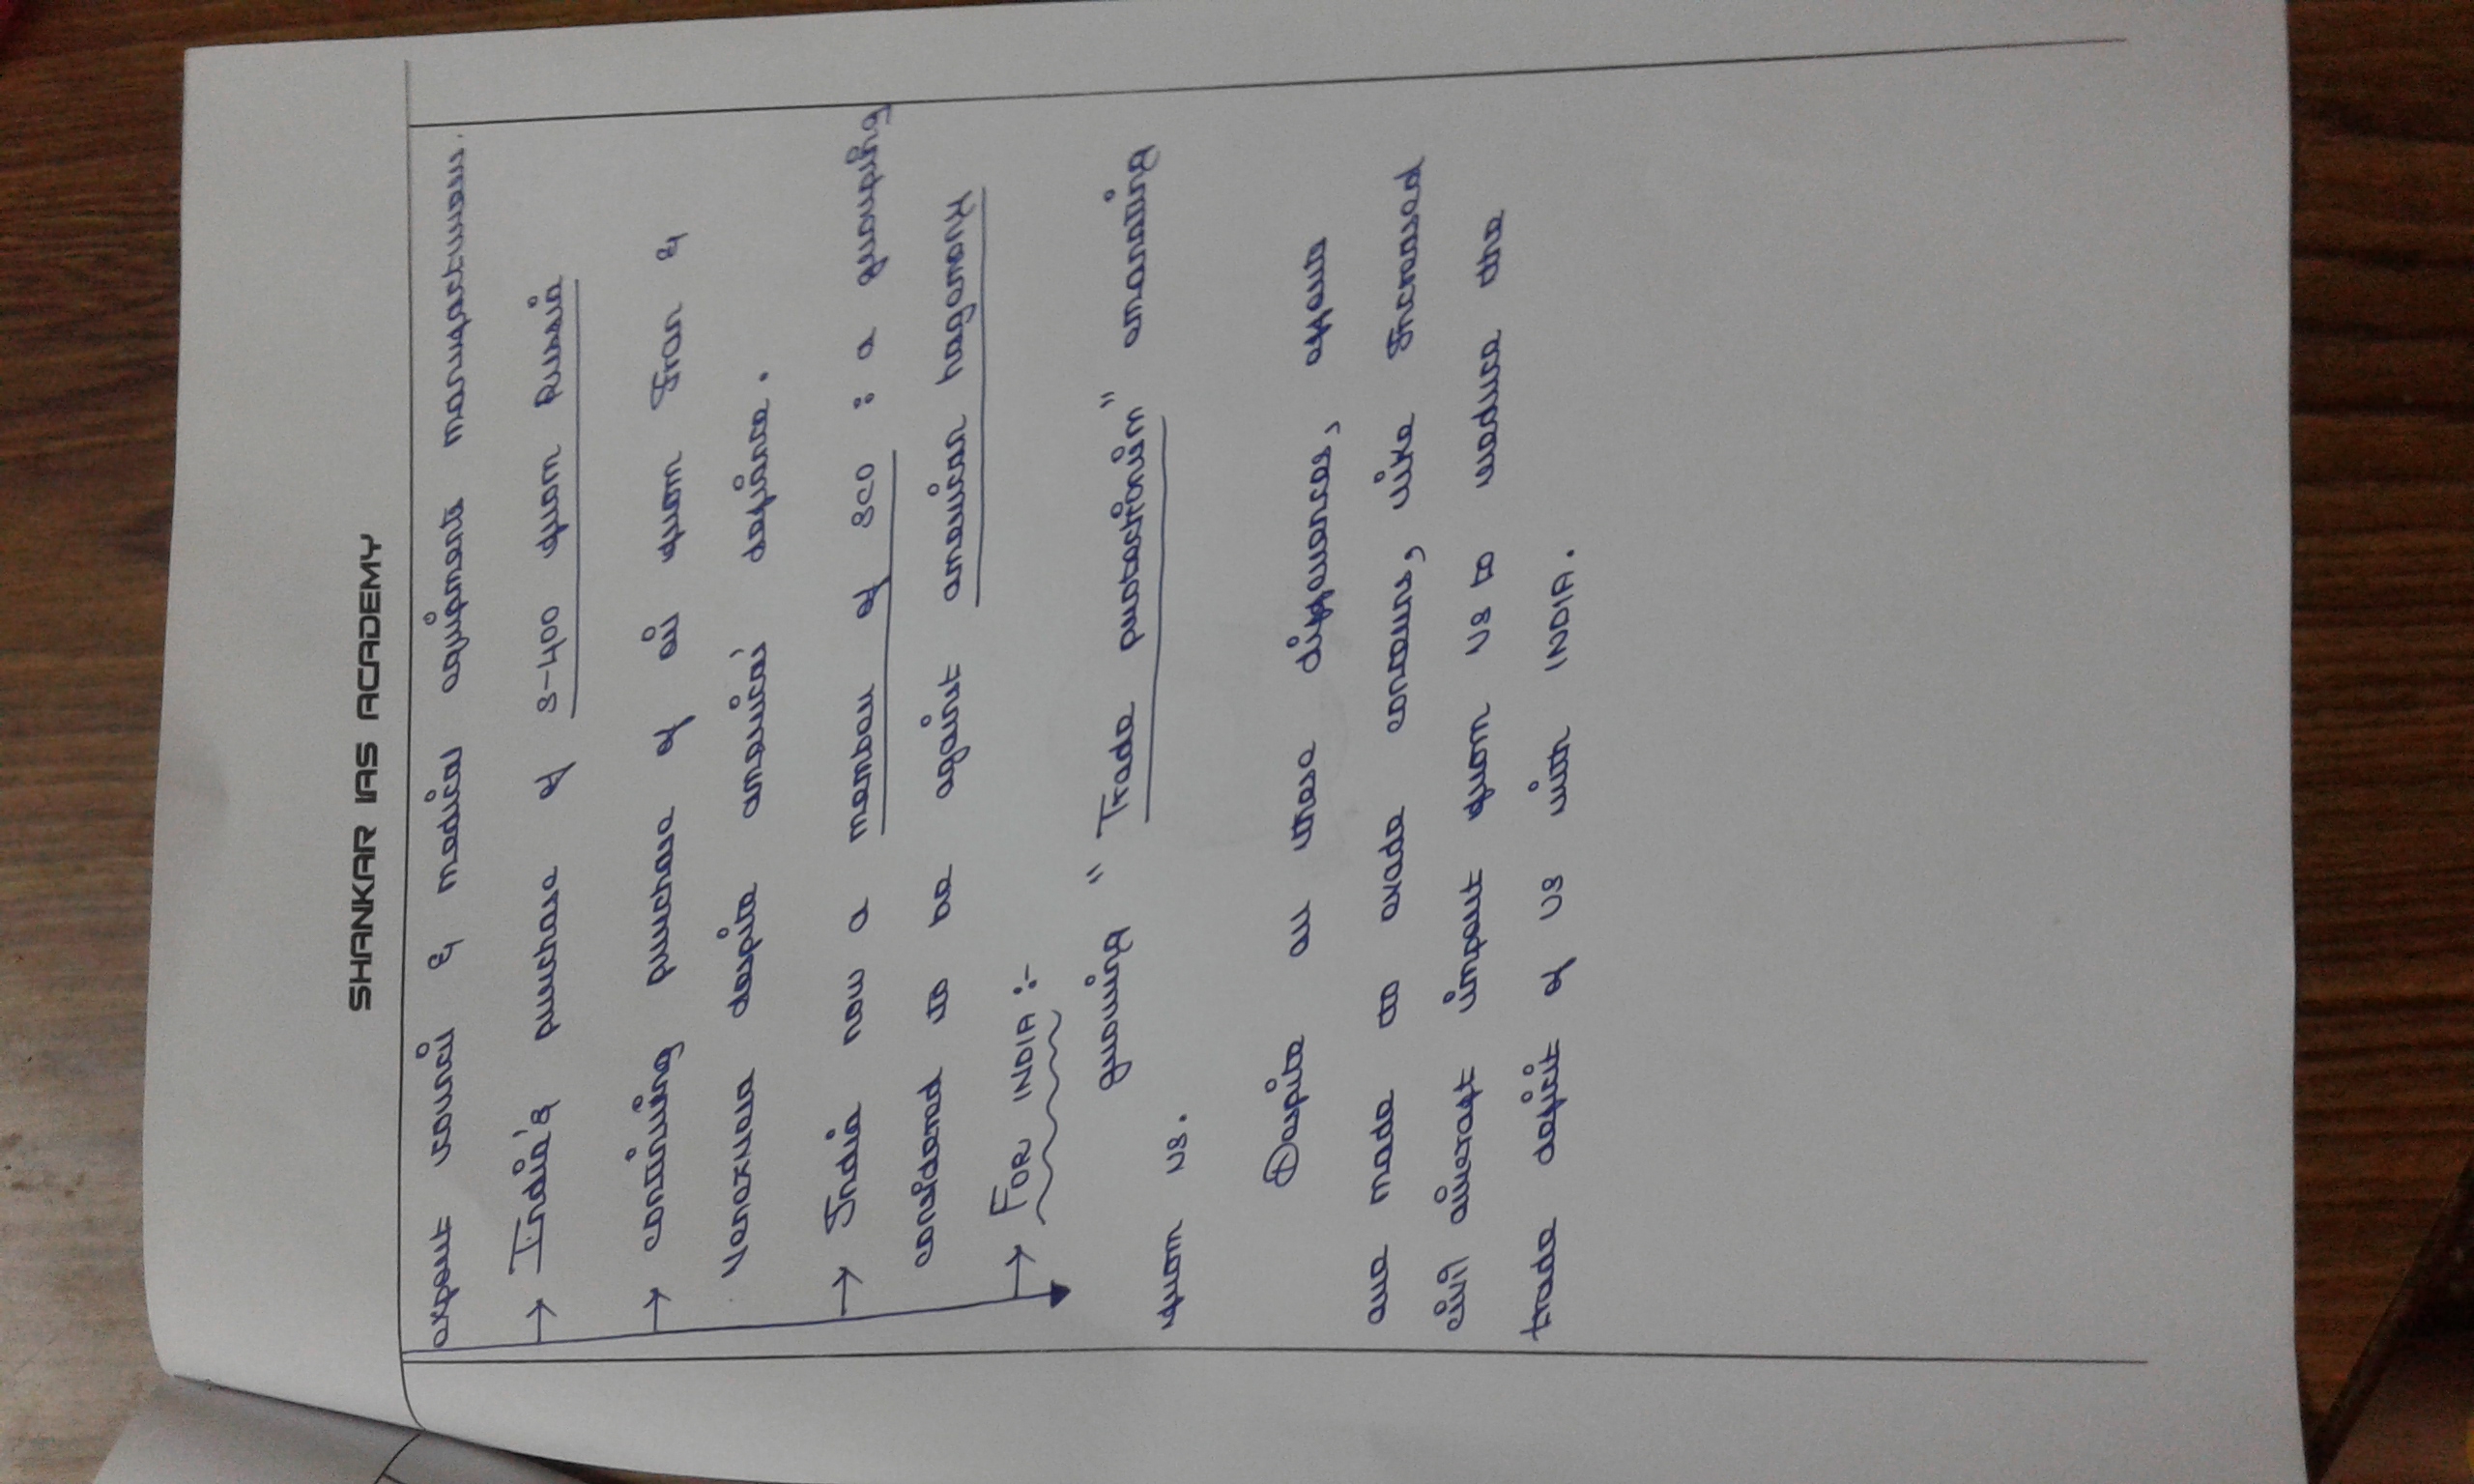 SHANKAR IAS ACADEMY
export council & medical equipments manufacturers.
→ India's purchase of S-400 from Russia
→ continuing purchase of oil from Iran &
Venezuela despite americas' defiance.
→ India now a member of SCO : a grouping
considered to be against american hegemony
→ FOR INDIA :-
growing "Trade protectionism" emanating
from US.
Despite all these differences, efforts
are made to evade concerns, like Increased
civil aircraft import from US to reduce the
trade deficit of US with INDIA.